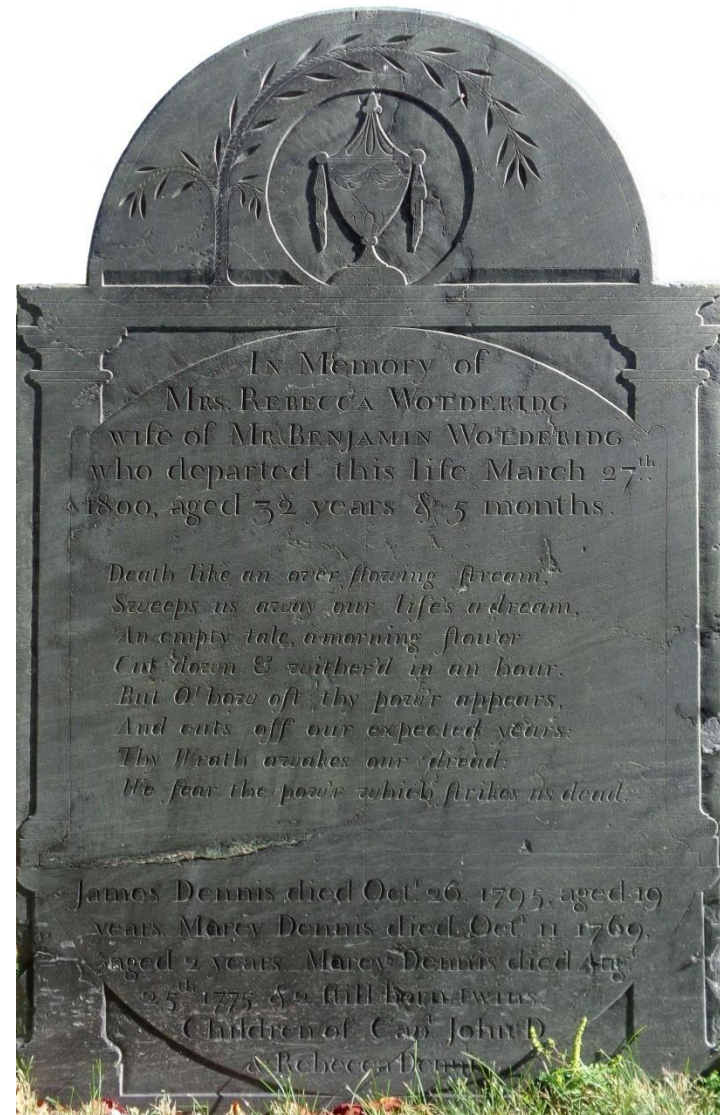 In Memory of
Mrs. Rebecca Wotderidg
wife of Mr. Benjamin Wotderidg
who departed this life March 27th
1800, aged 32 years & 5 months.
Death like an over flowing ſtream,
Sweeps us away our life's a dream,
An empty tale, a morning flower
Cut down & wither'd in an hour.
But O! how oft thy pow'r appears,
And cuts off our expected years:
Thy Wrath awakes our dread:
We fear the pow'r which ſtrikes us dead.
James Dennis died Octr 26. 1795, aged 19
years. Marcy Dennis died Octr 11 1769,
aged 2 years. Marcy Dennis died Augt
25th 1775 & 2 ſtill born twins.
Children of Capt John D
& Rebecca Denn